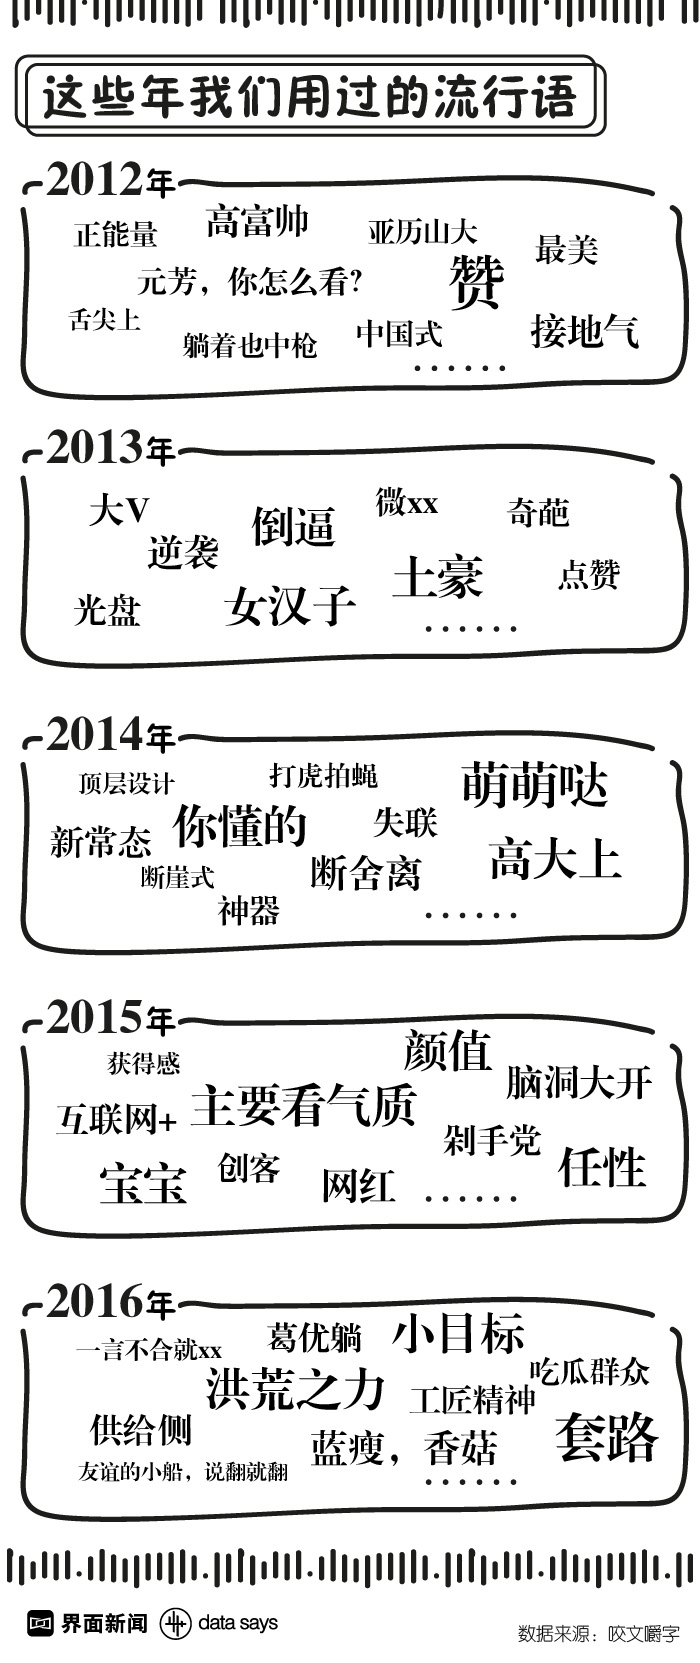 这些年我们用过的流行语
2012年
正能量 高富帅 亚历山大 最美
元芳，你怎么看? 赞
舌尖上 躺着也中枪 中国式 接地气
······
2013年
大V 倒逼 微xx 奇葩
逆袭 土豪 点赞
光盘 女汉子
······
2014年
顶层设计 打虎拍蝇 萌萌哒
新常态 你懂的 失联 高大上
断崖式 断舍离
神器 ······
2015年
获得感 颜值 脑洞大开
互联网+ 主要看气质 剁手党
宝宝 创客 网红 任性
······
2016年
一言不合就xx 葛优躺 小目标
洪荒之力 工匠精神 吃瓜群众
供给侧 蓝瘦，香菇 套路
友谊的小船，说翻就翻 ······
界面新闻 data says
数据来源：咬文嚼字